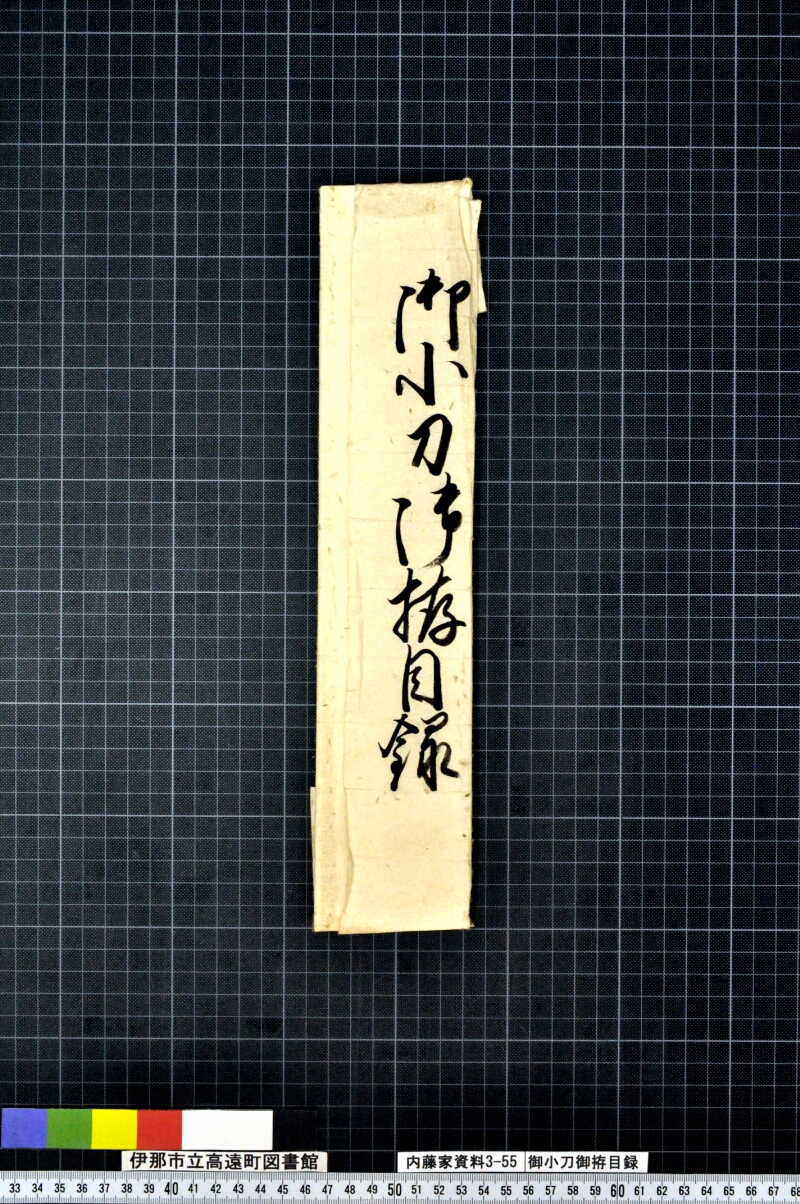 御小刀御拵目録
伊那市立高遠町図書館
内藤家資料3-55 御小刀御拵目録
33 34 35 36 37 38 39 40 41 42 43 44 45 46 47 48 49 50 51 52 53 54 55 56 57 58 59 60 61 62 63 64 65 66 67